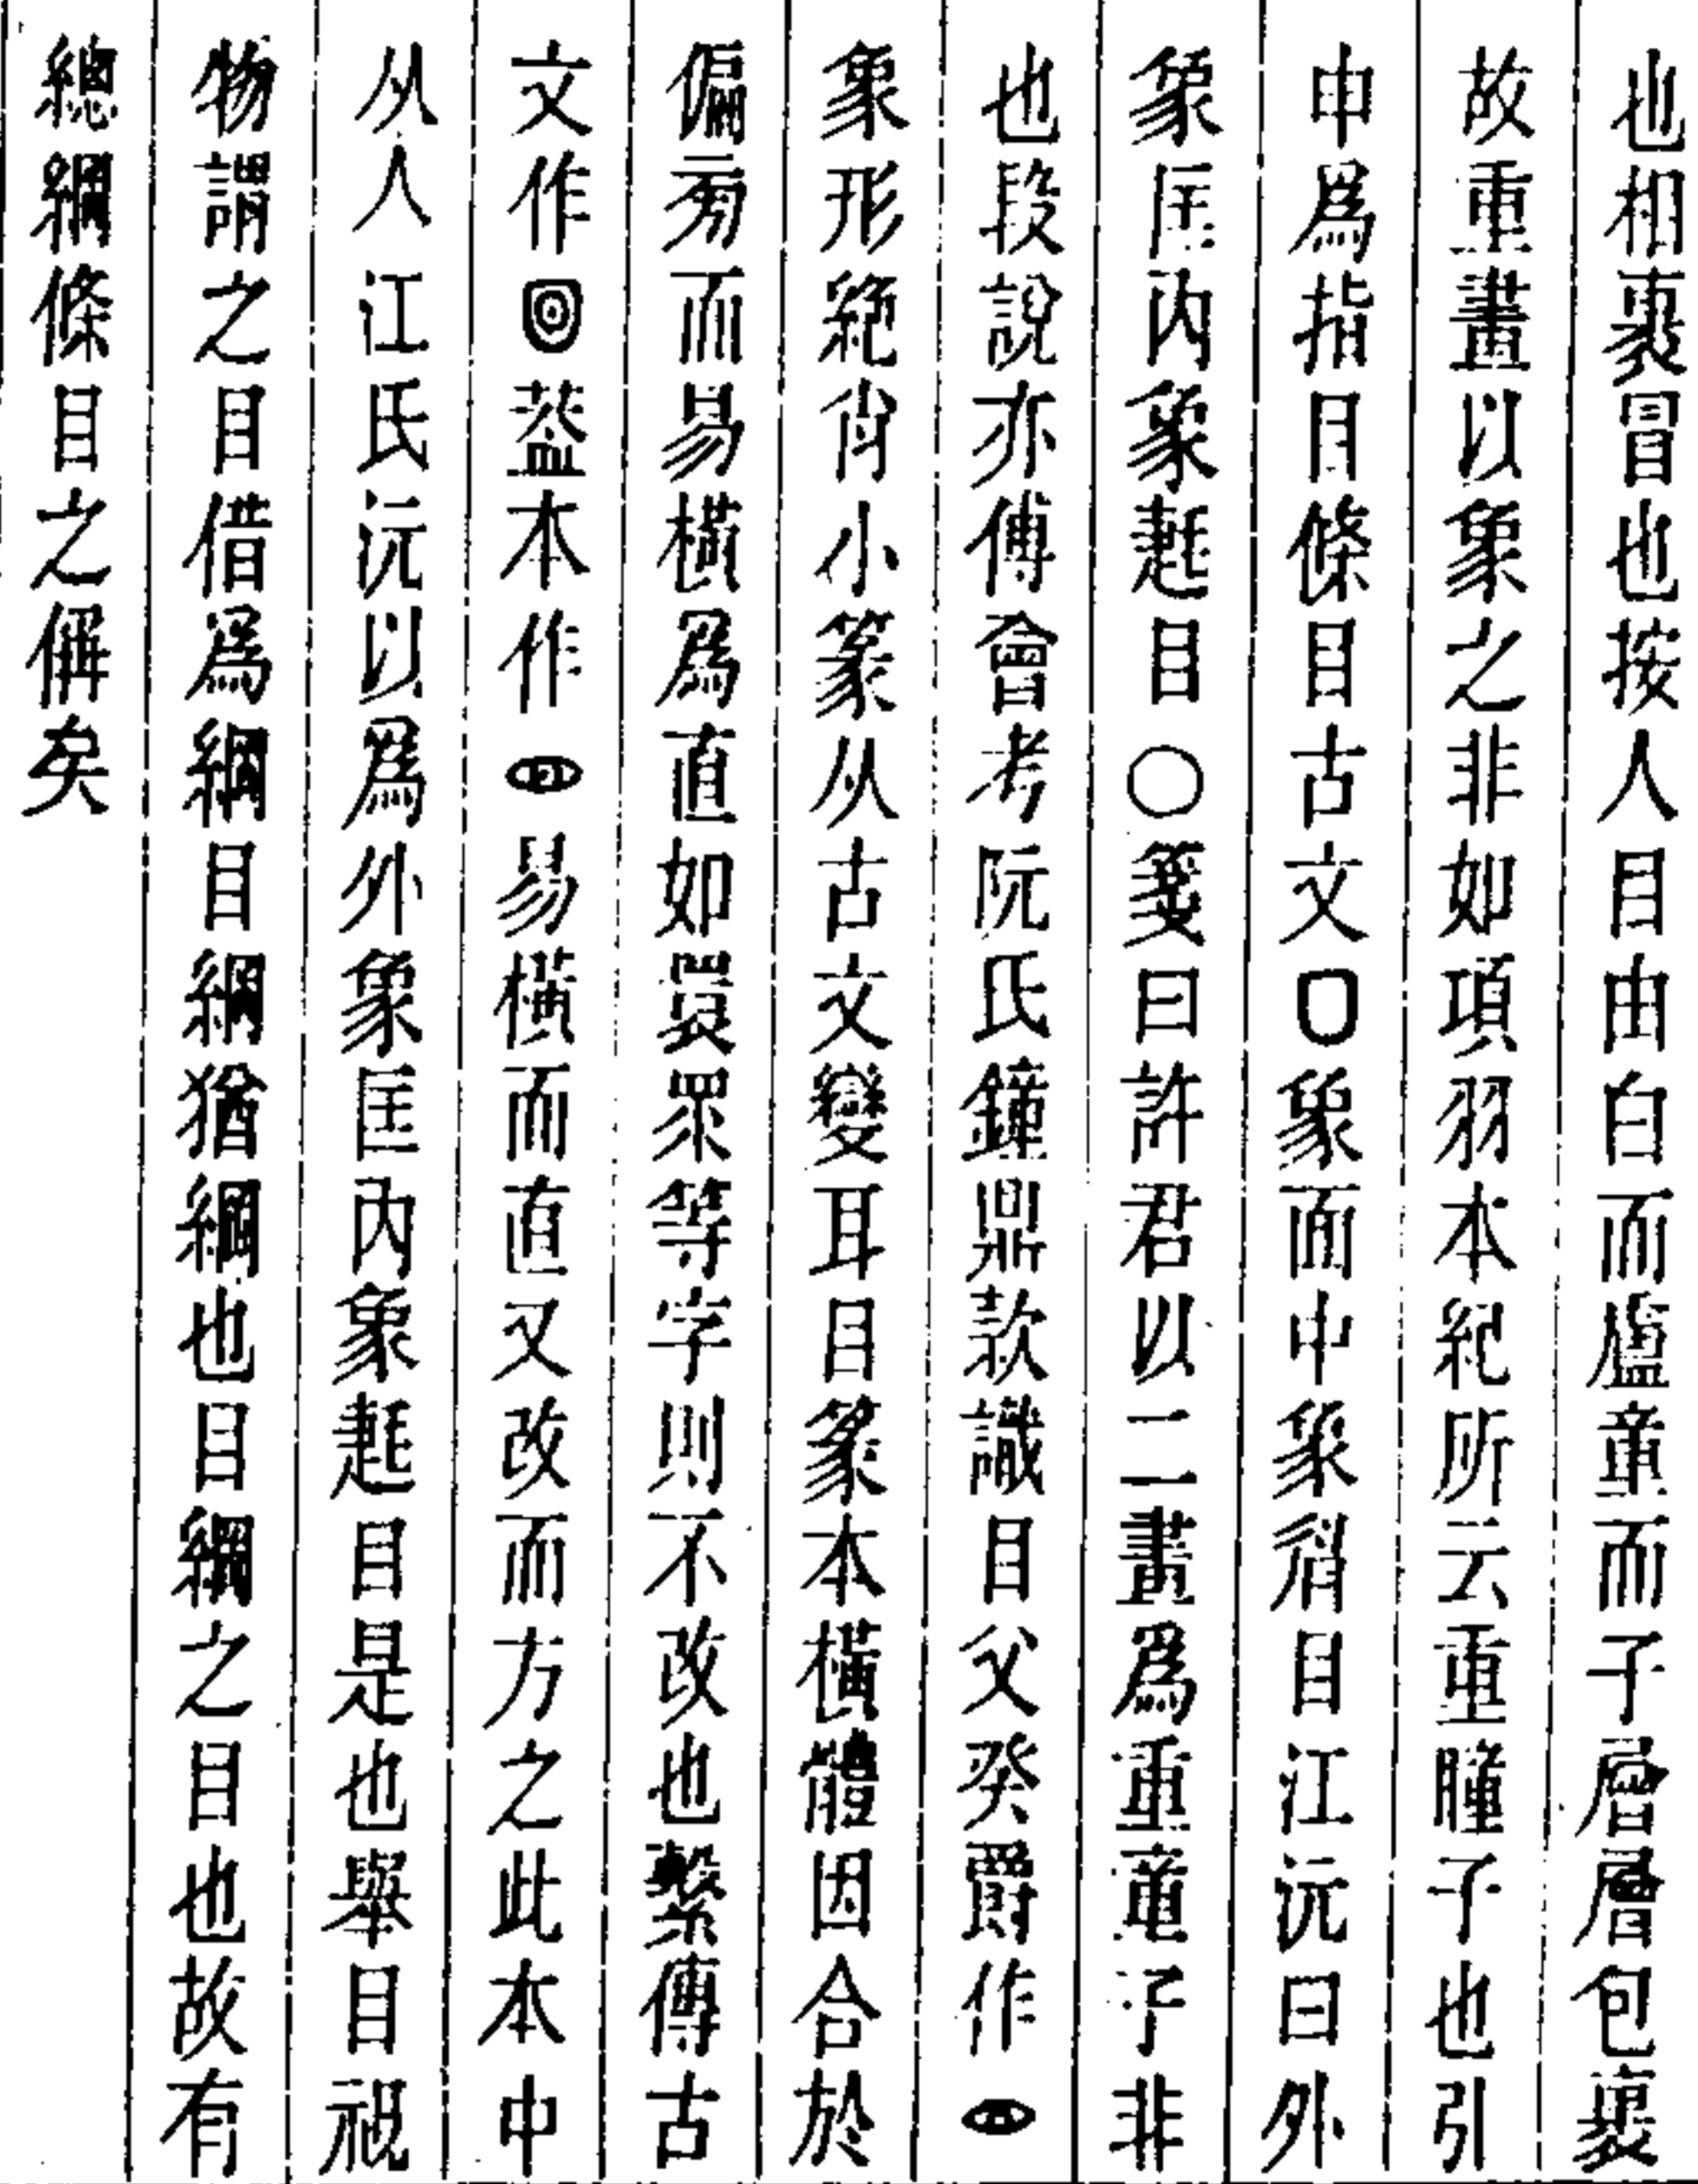 也相裹冒也按人目由白而廬童而子層層包裹
故重畫以象之非如項羽本紀所云重瞳子也引
申爲指目條目古文象面中象𥇛目江沅曰外
象匡內象𪓰目○箋曰許君以二畫爲重童子非
也段說亦傅會考阮氏鐘鼎款識目父癸爵作
象形絕肖小篆从古文變耳目篆本橫體因合於
偏旁而易橫爲直如睘眾等字則不改也繫傳古
文作蓋本作易橫而直又改而方之此本中
从人江氏沅以爲外象匡內象目是也舉目視
物謂之目借爲網目網猶綱也目網之目也故有
總綱條目之偁矣